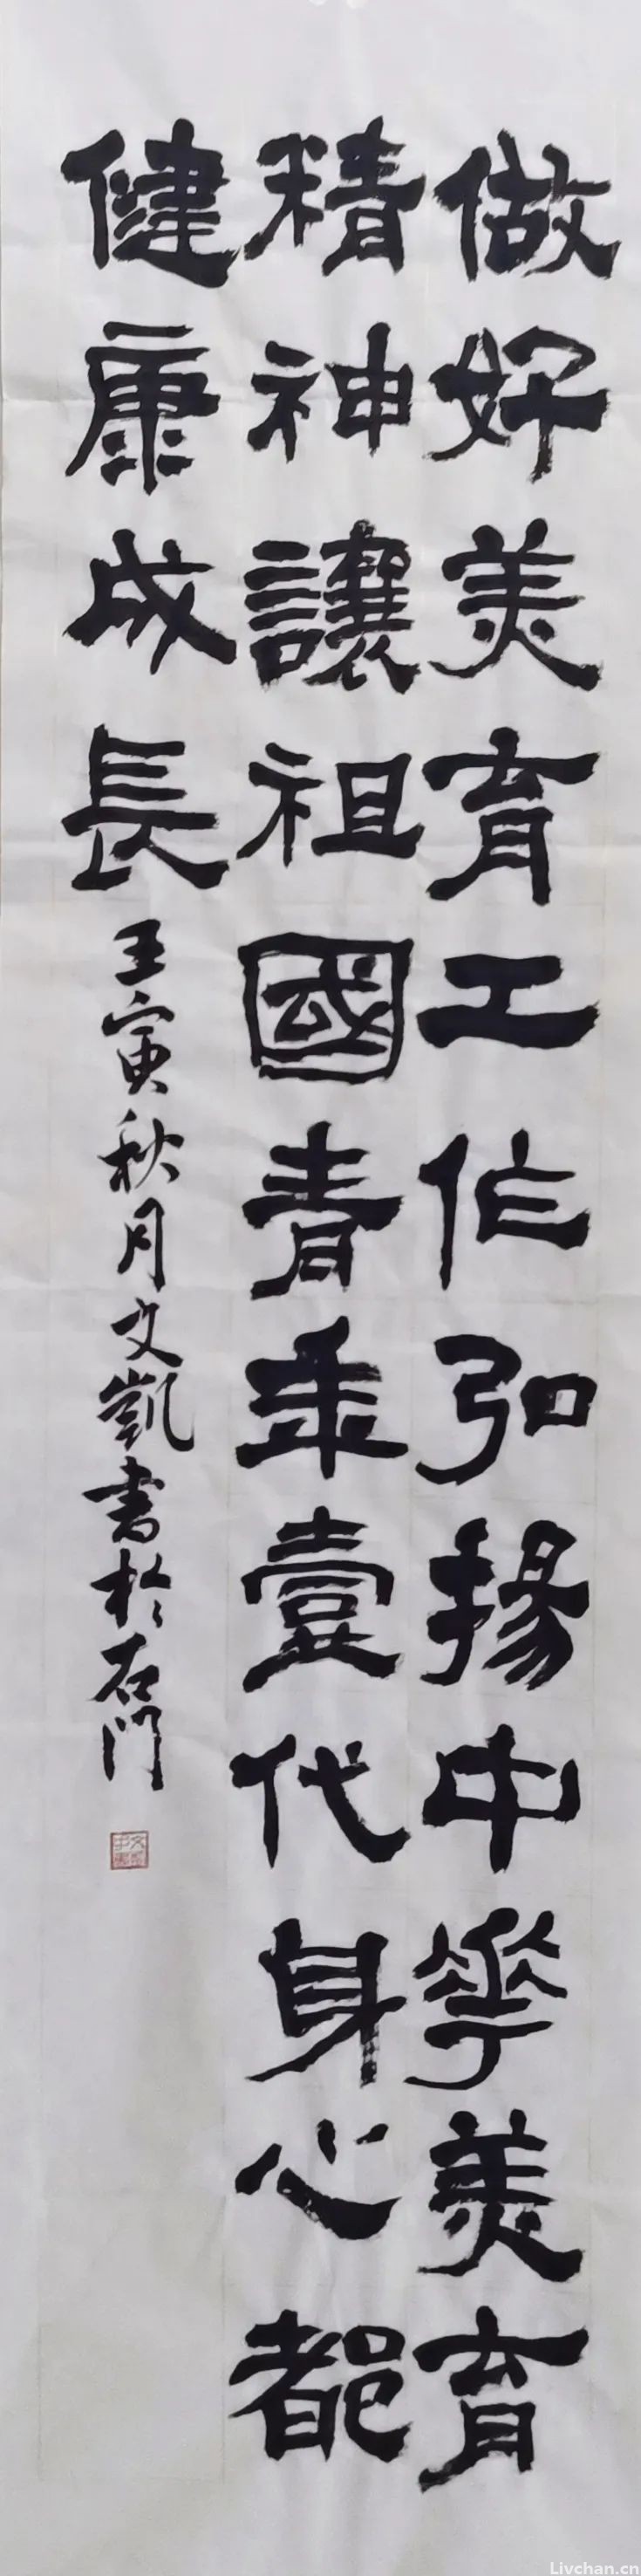 做好美育工作弘揚中華美育
精神讓祖國青年壹代身心都
健康成長
壬寅秋月文凱書於石門
Livchan.cn